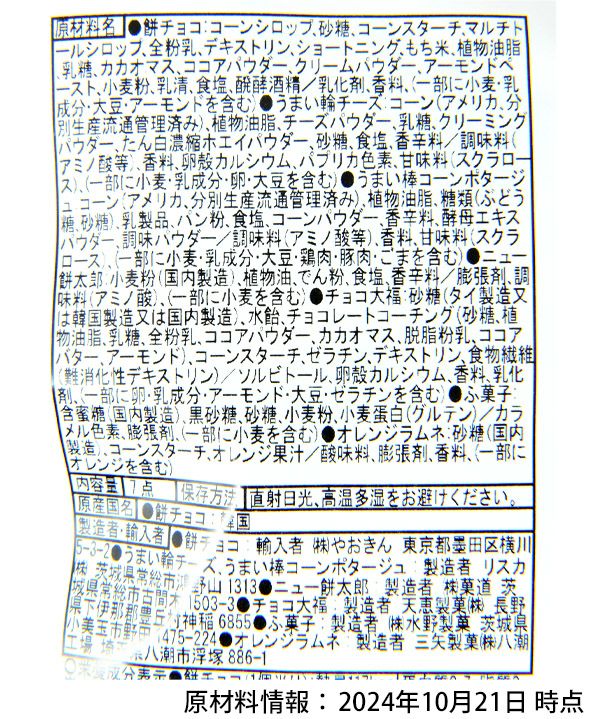 原材料名 ●餅チョコ:コーンシロップ、砂糖、コーンスターチ、マルチト
ールシロップ、全粉乳、デキストリン、ショートニング、もち米、植物油脂
、乳糖、カカオマス、ココアパウダー、クリームパウダー、アーモンドペ
ースト、小麦粉、乳清、食塩、醗酵酒精/乳化剤、香料、(一部に小麦・乳
成分・大豆・アーモンドを含む)●うまい輪チーズ:コーン(アメリカ、分
別生産流通管理済み)、植物油脂、チーズパウダー、乳糖、クリーミング
パウダー、たん白濃縮ホエイパウダー、砂糖、食塩、香辛料/調味料(
アミノ酸等)、香料、卵殻カルシウム、パプリカ色素、甘味料(スクラロー
ス)、(一部に小麦・乳成分・卵・大豆を含む)●うまい棒コーンポタージ
ュ:コーン(アメリカ、分別生産流通管理済み)、植物油脂、糖類(ぶどう
糖、砂糖)、乳製品、パン粉、食塩、コーンパウダー、香辛料、酵母エキス
パウダー、調味パウダー/調味料(アミノ酸等)、香料、甘味料(スクラ
ロース)、(一部に小麦・乳成分・大豆・鶏肉・豚肉・ごまを含む)●ニュー
餅太郎:小麦粉(国内製造)、植物油、でん粉、食塩、香辛料/膨張剤、調
味料(アミノ酸)、(一部に小麦を含む)●チョコ大福:砂糖(タイ製造又
は韓国製造又は国内製造)、水飴、チョコレートコーチング(砂糖、植
物油脂、乳糖、全粉乳、ココアパウダー、カカオマス、脱脂粉乳、ココア
バター、アーモンド)、コーンスターチ、ゼラチン、デキストリン、食物繊維
(難消化性デキストリン)/ソルビトール、卵殻カルシウム、香料、乳化
剤、(一部に卵・乳成分・アーモンド・大豆・ゼラチンを含む)●ふ菓子:
含蜜糖(国内製造)、黒砂糖、砂糖、小麦粉、小麦蛋白(グルテン)/カラ
メル色素、膨張剤、(一部に小麦を含む)●オレンジラムネ:砂糖(国内
製造)、コーンスターチ、オレンジ果汁/酸味料、膨張剤、香料、(一部に
オレンジを含む)
内容量 7点 保存方法 直射日光、高温多湿をお避けください。
原産国名 ●餅チョコ:韓国
製造者・輸入者 ●餅チョコ:輸入者 ㈱やおきん 東京都墨田区横川
5-3-2●うまい輪チーズ、うまい棒コーンポタージュ:製造者 リスカ
㈱ 茨城県常総市鴻野山1313●ニュー餅太郎:製造者 ㈱菓道 茨
城県常総市古間木1503-3●チョコ大福:製造者 天恵製菓㈱ 長野
県下伊那郡豊丘村神稲6855●ふ菓子:製造者 ㈱水野製菓 茨城県
小美玉市野田1475-224●オレンジラムネ:製造者 三矢製菓㈱八潮
工場 埼玉県八潮市浮塚886-1
栄養成分表示●餅チョコ
原材料情報:2024年10月21日 時点